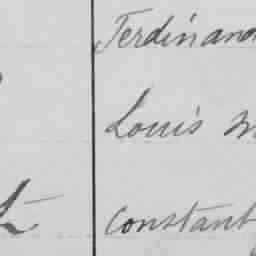 Ferdinand
Louis M
Constant